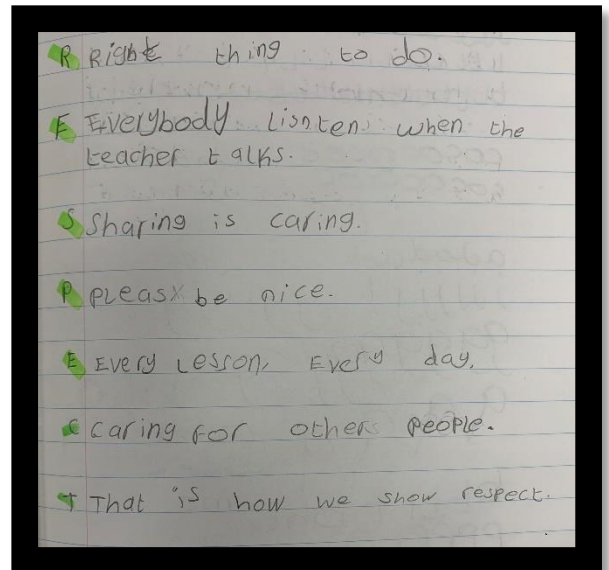 R Right thing to do.
E Everybody Lisnten when the
teacher talks.
S Sharing is caring.
P pleasx be nice.
E Every Lesson, Every day,
C Caring for other people.
T That is how we show respect.